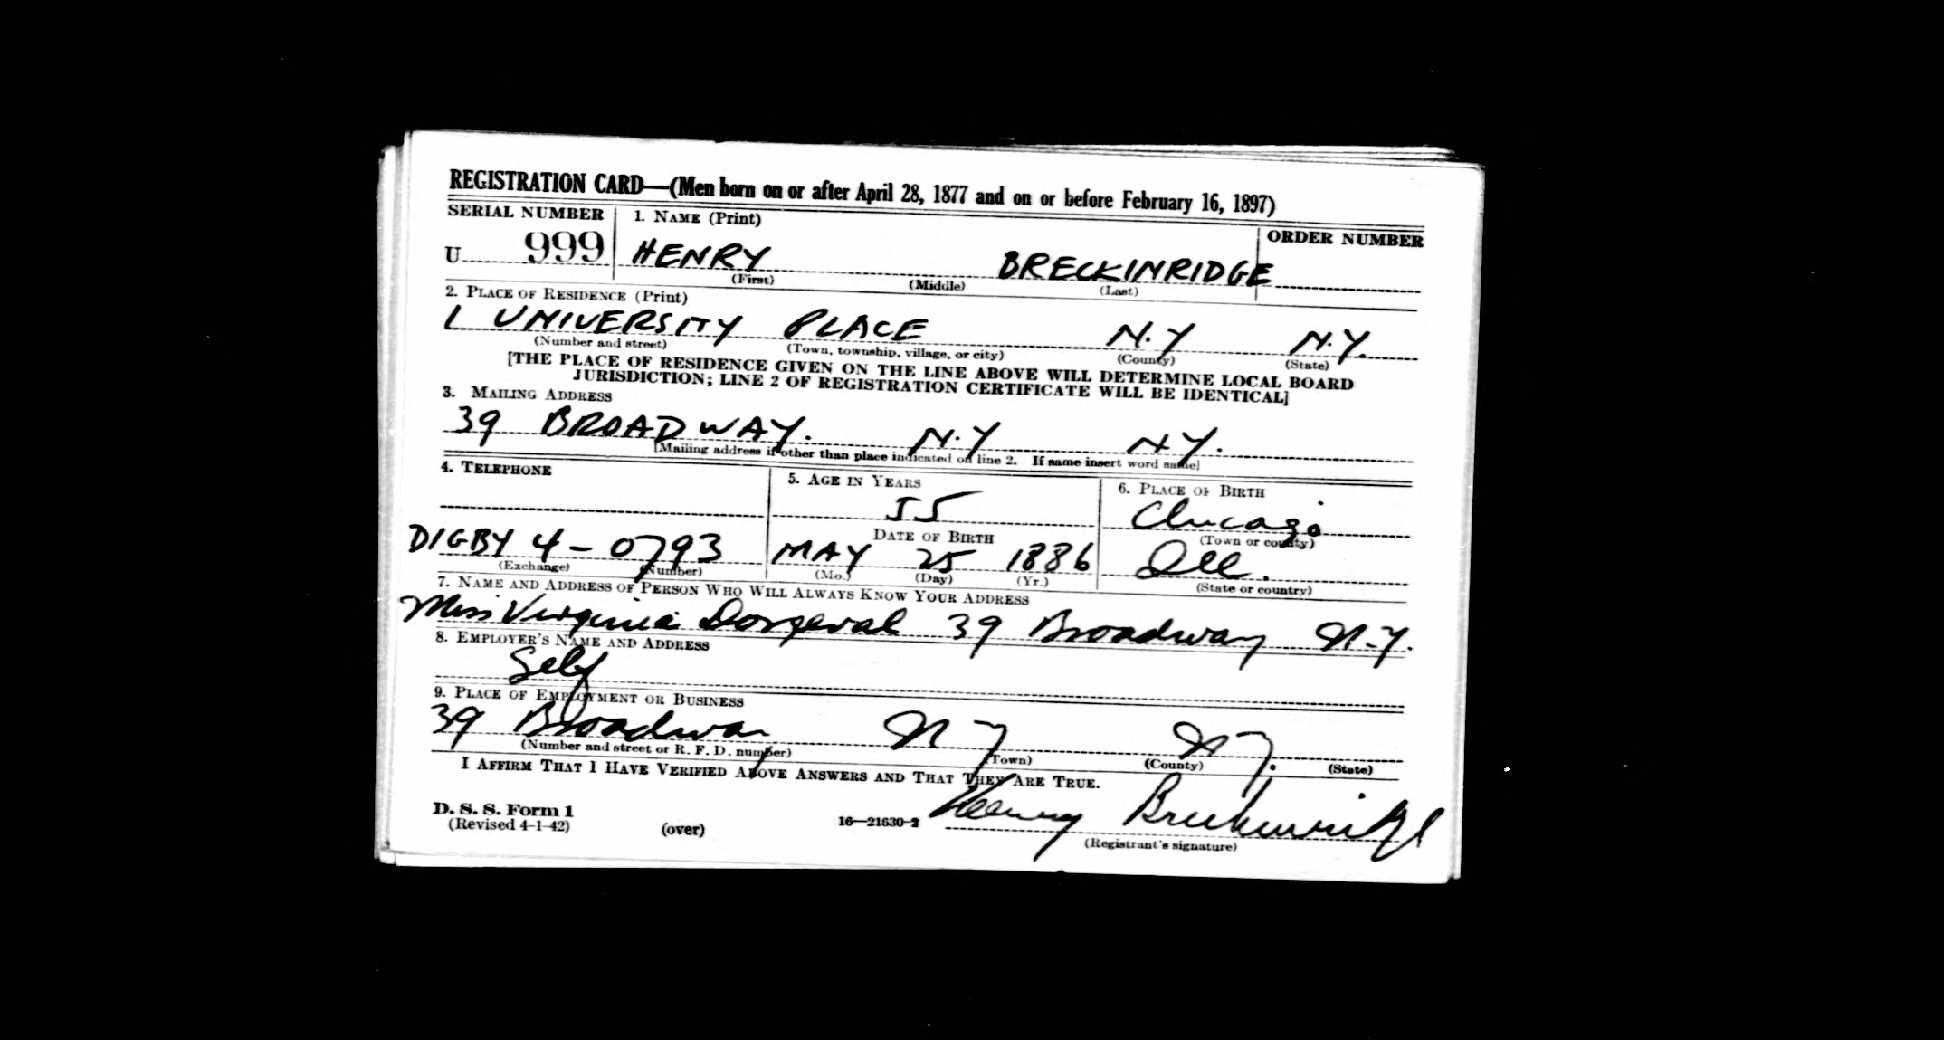 REGISTRATION CARD—(Men born on or after April 28, 1877 and on or before February 16, 1897)
SERIAL NUMBER 1. NAME (Print) ORDER NUMBER
U 999 HENRY BRECKINRIDGE
(First) (Middle) (Last)
2. PLACE OF RESIDENCE (Print)
1 UNIVERSITY PLACE N.Y N.Y.
(Number and street) (Town, township, village, or city) (County) (State)
[THE PLACE OF RESIDENCE GIVEN ON THE LINE ABOVE WILL DETERMINE LOCAL BOARD
JURISDICTION; LINE 2 OF REGISTRATION CERTIFICATE WILL BE IDENTICAL]
3. MAILING ADDRESS
39 BROADWAY. N.Y NY.
[Mailing address if other than place indicated on line 2. If same insert word same]
4. TELEPHONE 5. AGE IN YEARS 6. PLACE OF BIRTH
55 Chicago
DATE OF BIRTH (Town or county)
DIGBY 4-0793 MAY 25 1886 Ill.
(Exchange) (Number) (Mo.) (Day) (Yr.) (State or country)
7. NAME AND ADDRESS OF PERSON WHO WILL ALWAYS KNOW YOUR ADDRESS
Miss Virginia 39 Broadway N.Y.
8. EMPLOYER'S NAME AND ADDRESS
Self
9. PLACE OF EMPLOYMENT OR BUSINESS
39 Broadway N Y N Y.
(Number and street or R. F. D. number) (Town) (County) (State)
I AFFIRM THAT I HAVE VERIFIED ABOVE ANSWERS AND THAT THEY ARE TRUE.
D. S. S. Form 1
(Revised 4-1-42) (over) 16—21630-2 Henry Breckinridge
(Registrant's signature)